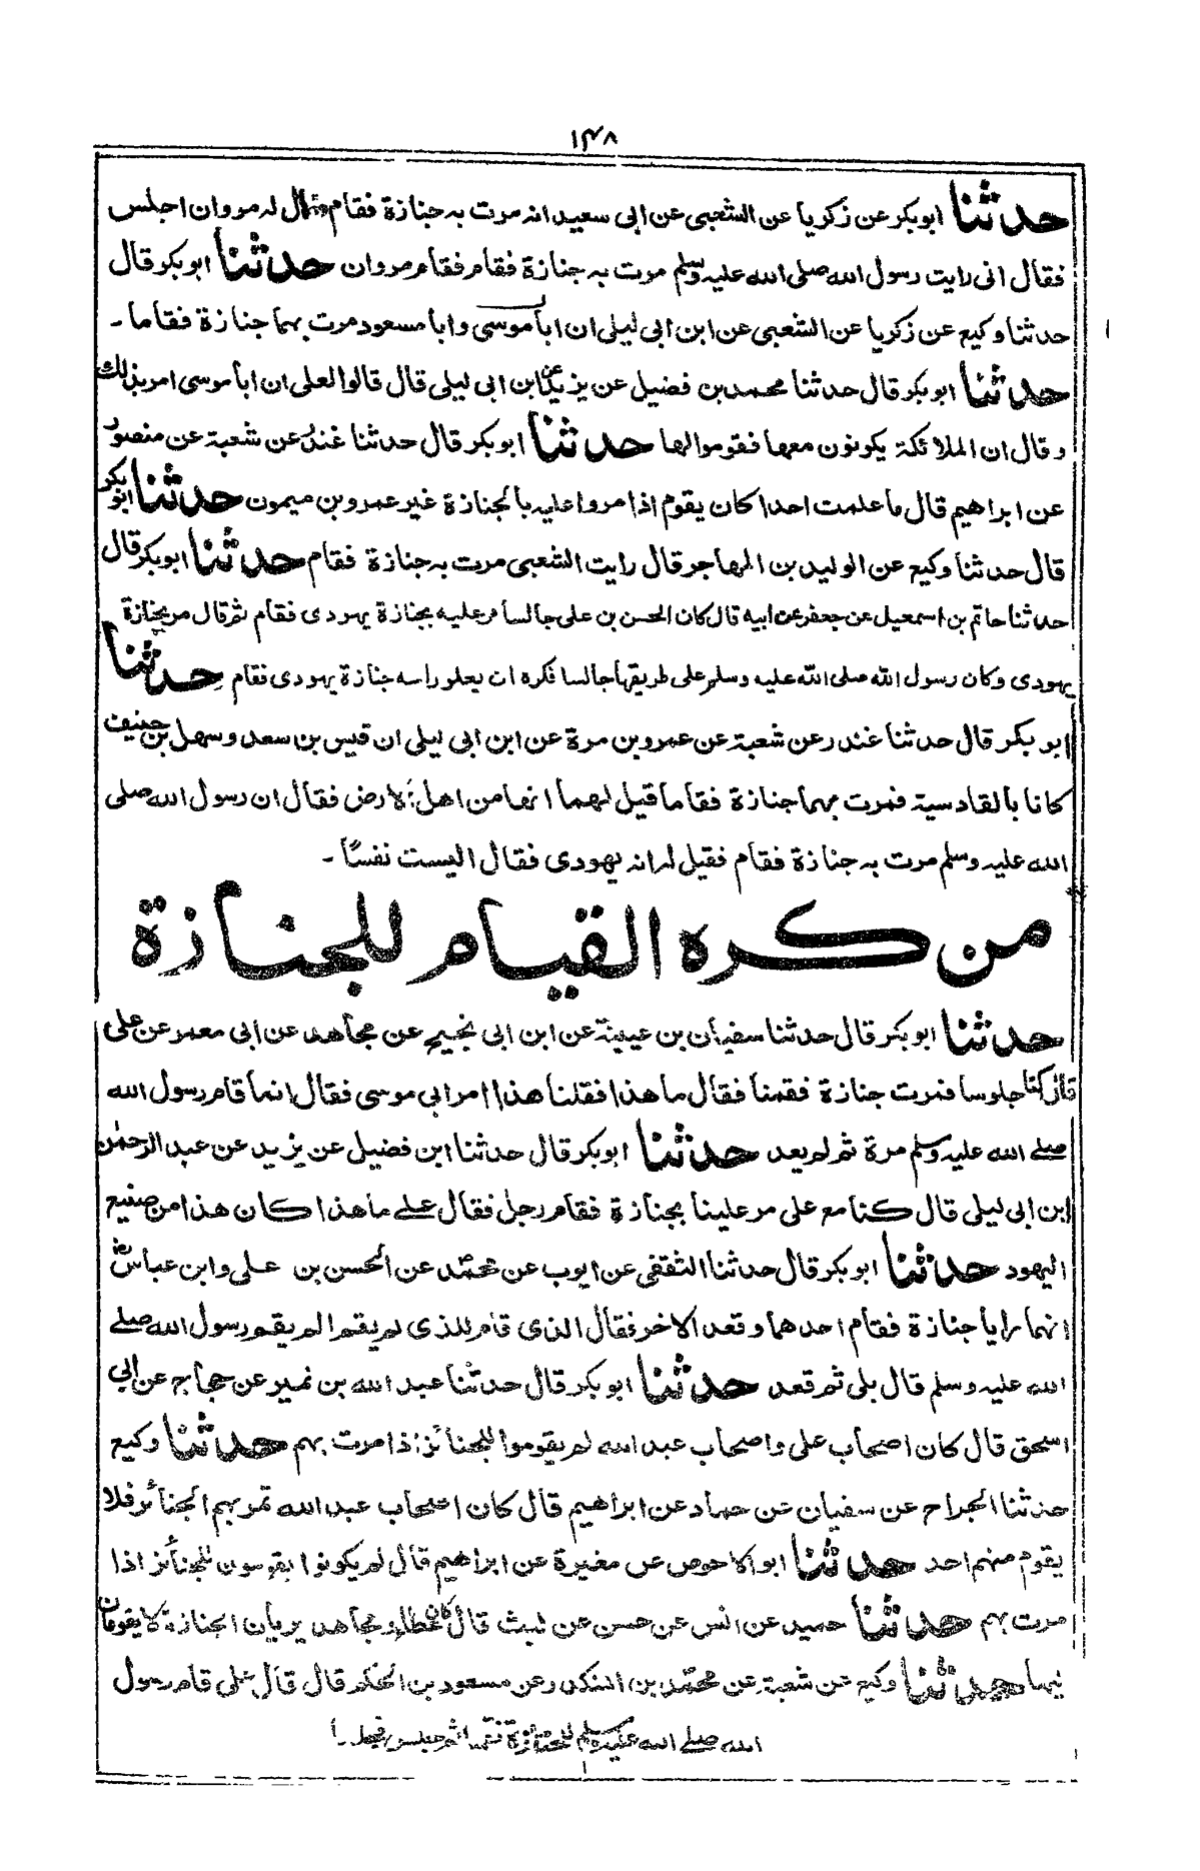 ١٣٨
حدثنا ابوبكر عن زكريا عن الشعبى عن ابى سعيد انه مرت به جنازة فقام فقال له مروان اجلس
فقال انى رايت رسول الله صلى الله عليه وسلم مرت به جنازة فقام فقام مروان حدثنا ابوبكر قال
حدثنا وكيع عن زكريا عن الشعبى عن ابن ابى ليلى ان ابا موسى وابا مسعود مرت بهما جنازة فقاما -
حدثنا ابوبكر قال حدثنا محمد بن فضيل عن يزيد عن ابن ابى ليلى قال قالوا لعلى ان ابا موسى امر بذلك
وقال ان الملائكة يكونون معها فقوموا لها حدثنا ابوبكر قال حدثنا غندر عن شعبة عن منصور
عن ابراهيم قال ما علمت احدا كان يقوم اذا مروا عليه بالجنازة غير عمرو بن ميمون حدثنا ابوبكر
قال حدثنا وكيع عن الوليد بن المهاجر قال رايت الشعبى مرت به جنازة فقام حدثنا ابوبكر قال
حدثنا حاتم بن اسمعيل عن جعفر عن ابيه قال كان الحسن بن على جالسا مر عليه بجنازة يهودى فقام ثم قال مر بجنازة
يهودى وكان رسول الله صلى الله عليه وسلم على طريقها جالسا فكره ان يعلو راسه جنازة يهودى فقام حدثنا
ابو بكر قال حدثنا غندر عن شعبة عن عمرو بن مرة عن ابن ابى ليلى ان قيس بن سعد وسهل بن حنيف
كانا بالقادسية فمرت بهما جنازة فقاما قيل لهما انها من اهل الارض فقال ان رسول الله صلى
الله عليه وسلم مرت به جنازة فقام فقيل له انه يهودى فقال اليست نفسًا -
من كره القيام للجنازة
حدثنا ابوبكر قال حدثنا سفيان بن عيينة عن ابن ابى نجيح عن مجاهد عن ابى معمر عن على
قال كنا جلوسا فمرت جنازة فقمنا فقال ما هذا فقلنا هذا امر ابى موسى فقال انما قام رسول الله
صلى الله عليه وسلم مرة ثم لم يعد حدثنا ابوبكر قال حدثنا ابن فضيل عن يزيد عن عبد الرحمن
ابن ابى ليلى قال كنا مع على مر علينا بجنازة فقام رجل فقال على ما هذا كان هذا من صنيع
اليهود حدثنا ابوبكر قال حدثنا الثقفى عن ايوب عن محمد عن الحسن بن على وابن عباس
انهما رايا جنازة فقام احدهما وقعد الاخر فقال الذى قام للذى لم يقم الم يقم رسول الله صلى
الله عليه وسلم قال بلى ثم قعد حدثنا ابوبكر قال حدثنا عبد الله بن نمير عن حجاج عن ابى
اسحق قال كان اصحاب على واصحاب عبد الله لم يقوموا للجنائز اذا مرت بهم حدثنا وكيع
حدثنا الجراح عن سفيان عن حماد عن ابراهيم قال كان اصحاب عبد الله تمر بهم الجنائز فلا
يقوم منهم احد حدثنا ابو الاحوص عن مغيرة عن ابراهيم قال لم يكونوا يقومون للجنائز اذا
مرت بهم حدثنا حميد عن انس عن حسن عن ليث قال كان عطاء ومجاهد يريان الجنازة لا يقومان
لها حدثنا وكيع عن شعبة عن محمد بن المنكدر عن مسعود بن الحكم قال قال على قام رسول
الله صلى الله عليه وسلم للجنازة ثم جلس